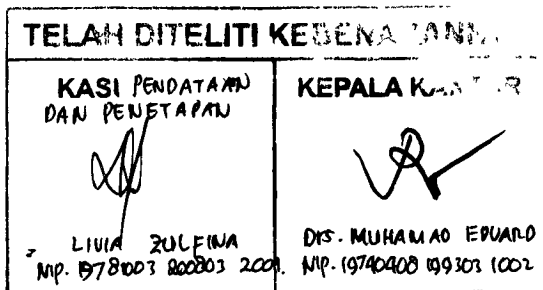 TELAH DITELITI
KASI PENDATAAN
DAN PENETAPAN
LIVIA ZULFINA
NIP. 19781003 200803 2001.
KEPALA
Drs. MUHAMAD EDUARD
NIP. 19740408 199303 1002